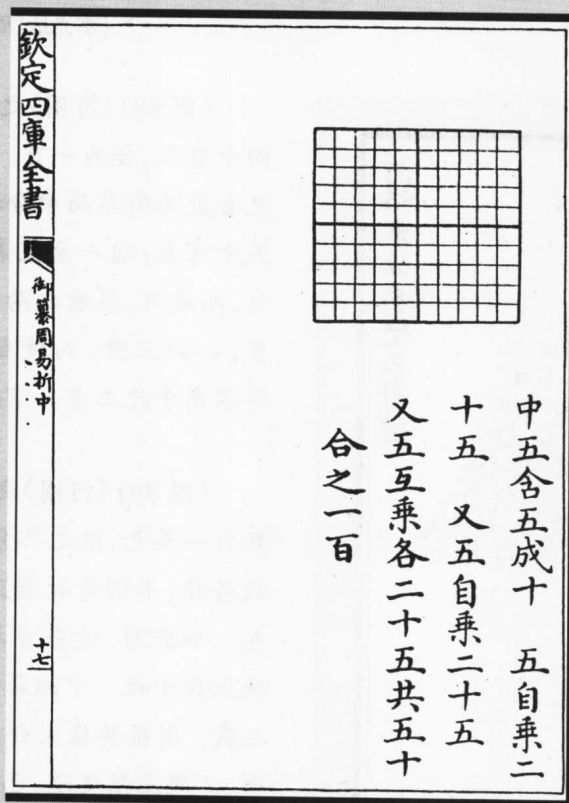 中五含五成十　五自乗二
十五　又五自乗二十五
又五互乗各二十五共五十
合之一百
欽定四庫全書
御纂周易折中
十七